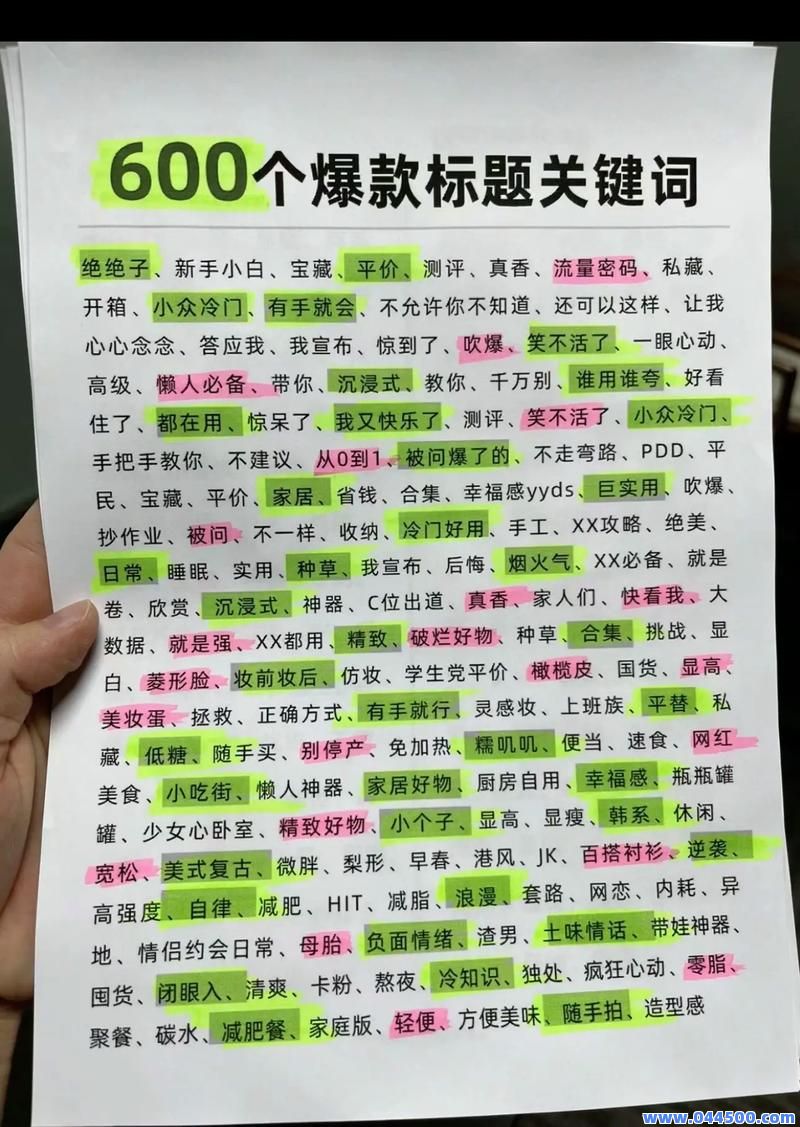 600个爆款标题关键词
绝绝子、新手小白、宝藏、平价、测评、真香、流量密码、私藏、
开箱、小众冷门、有手就会、不允许你不知道、还可以这样、让我
心心念念、答应我、我宣布、惊到了、吹爆、笑不活了、一眼心动、
高级、懒人必备、带你、沉浸式、教你、千万别、谁用谁夸、好看
住了、都在用、惊呆了、我又快乐了、测评、笑不活了、小众冷门、
手把手教你、不建议、从0到1、被问爆了的、不走弯路、PDD、平
民、宝藏、平价、家居、省钱、合集、幸福感yyds、巨实用、吹爆、
抄作业、被问、不一样、收纳、冷门好用、手工、XX攻略、绝美、
日常、睡眠、实用、种草、我宣布、后悔、烟火气、XX必备、就是
卷、欣赏、沉浸式、神器、C位出道、真香、家人们、快看我、大
数据、就是强、XX都用、精致、破烂好物、种草、合集、挑战、显
白、菱形脸、妆前妆后、仿妆、学生党平价、橄榄皮、国货、显高、
美妆蛋、拯救、正确方式、有手就行、灵感妆、上班族、平替、私
藏、低糖、随手买、别停产、免加热、糯叽叽、便当、速食、网红
美食、小吃街、懒人神器、家居好物、厨房自用、幸福感、瓶瓶罐
罐、少女心卧室、精致好物、小个子、显高、显瘦、韩系、休闲、
宽松、美式复古、微胖、梨形、早春、港风、JK、百搭衬衫、逆袭、
高强度、自律、减肥、HIT、减脂、浪漫、套路、网恋、内耗、异
地、情侣约会日常、母胎、负面情绪、渣男、土味情话、带娃神器、
囤货、闭眼入、清爽、卡粉、熬夜、冷知识、独处、疯狂心动、零脂、
聚餐、碳水、减肥餐、家庭版、轻便、方便美味、随手拍、造型感
www.044500.com